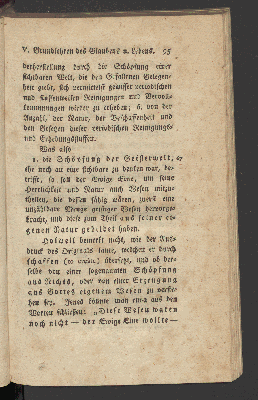 V. Grundlehren des Glaubens u. Lebens. 95
derherstellung durch die Schöpfung einer
sichtbaren Welt, die den Gefallenen Gelegen-
heit giebt, sich vermittelst gewisser periodischen
und stufenweisen Reinigungen und Vervoll-
kommnungen wieder zu erheben; 6. von der
Anzahl, der Natur, der Beschaffenheit und
den Gesetzen dieser periodischen Reinigungs-
und Erhebungsstuffen.
Was also
1. die Schöpfung der Geisterwelt, e-
ehe noch an eine sichtbare zu denken war, be-
trifft, so ließ der Ewige Eine, um seine
Herrlichkeit und Natur auch Wesen mitzu-
theilen, die dessen fähig wären, zuerst eine
unzählbare Menge geistiger Wesen
und diese zum Theil aus seiner ei-
genen Natur gebildet haben.
Holwell bemerkt nicht, wie der Aus-
druck des Originals laute, welcher er durch
schaffen (to create) übersetzt, und ob der-
selbe von einer sogenannten Schöpfung
aus Nichts, oder von einer Erzeugung
aus Gottes eigenem Wesen zu verste-
hen sey. Jenes könnte man etwa aus den
Worten schließen: „Diese Wesen waren
noch nicht — der Ewige Eine wollte —